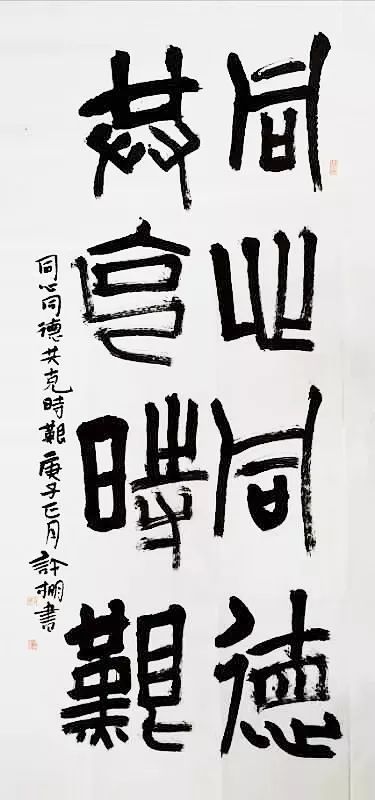 同心同德
共克時艱
同心同德共克時艱庚子正月許棚書